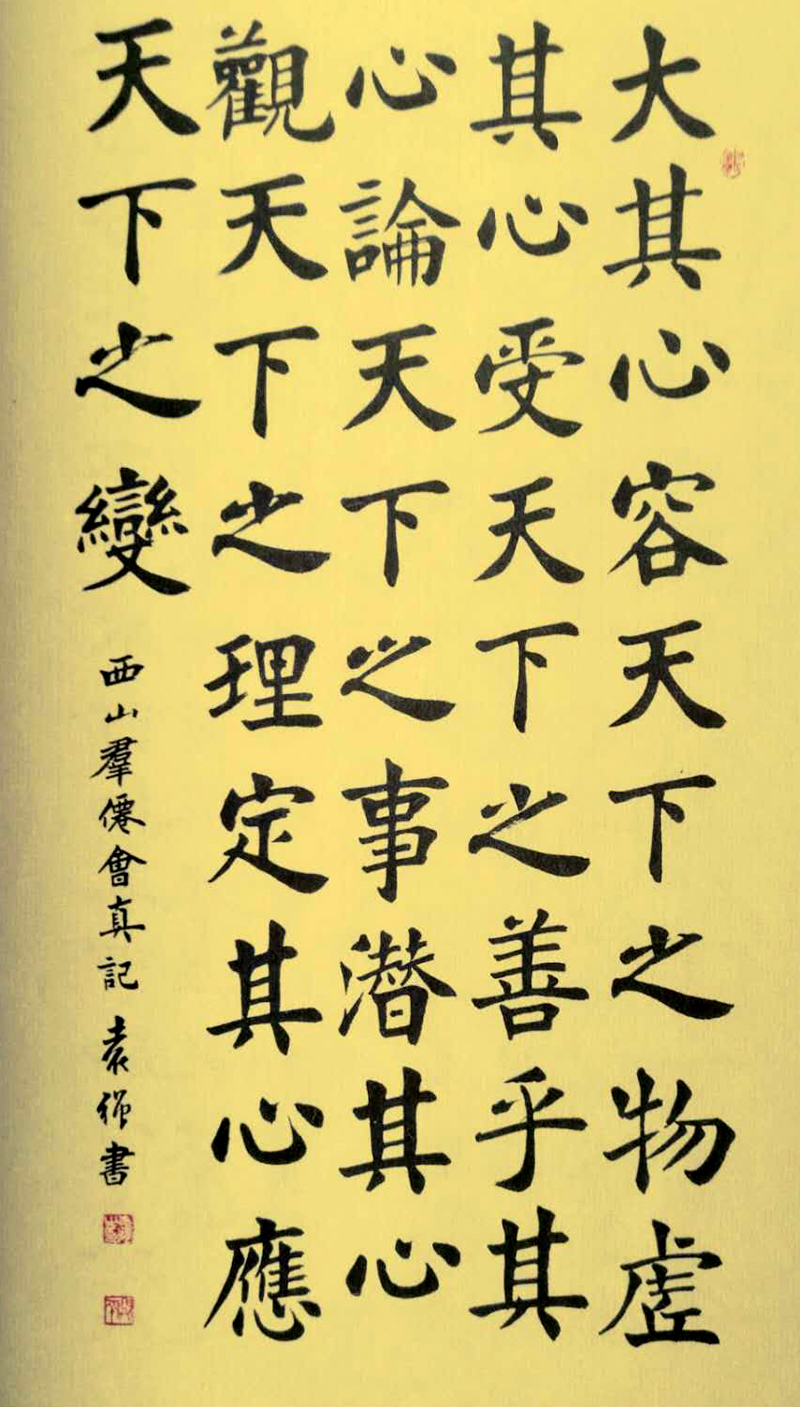 大其心容天下之物虛
其心受天下之善乎其
心論天下之事潛其心
觀天下之理定其心應
天下之變
西山羣僊會真記 袁 書